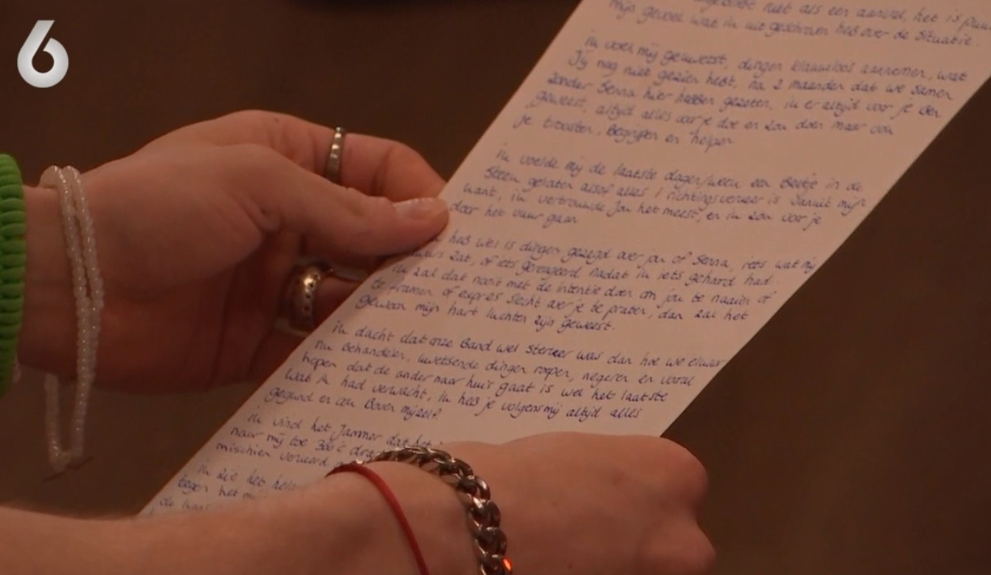 6
niet als een aanval, het is puur
mijn gevoel wat ik uit geschreven heb over de situatie.
ik voel mij gekwetst, dingen klakkeloos aannemen, wat
Jij nog niet gezien hebt, na 2 maanden dat we samen
zonder Senna hier hebben gezeten. ik er altijd voor je ben
geweest, altijd alles voor je doe en zou doen maar ook
je troosten, Begrijpen en helpen
Ik voelde mij de laatste dagen/week een Beetje in de
Steek gelaten alsof alles 1 richtingsverkeer is vanuit mijn
kant, ik vertrouwde Jou het meest, en ik zou voor je
door het vuur gaan
heb wel is dingen gezegd over jou of Senna, iets wat mij
dwars zat, of iets gereageerd nadat ik iets gehoord had.
Ik zal dat nooit met de intentie doen om jou te naaien of
te framen of expres slecht over je te praten, dan zal het
gewoon mijn hart luchten zijn geweest.
Ik dacht dat onze Band wel sterker was dan hoe we elkaar
nu Behandelen, kwetsende dingen roepen, negeren en vooral
hopen dat de ander naar huis gaat is wel het laatste
wat ik had verwacht, ik heb je volgens mij altijd alles
gegund en ook Boven mijzelf
Ik vind het Jammer dat het
naar mij toe 360°
misschien verkeerd
Ik zie het
tegen
de